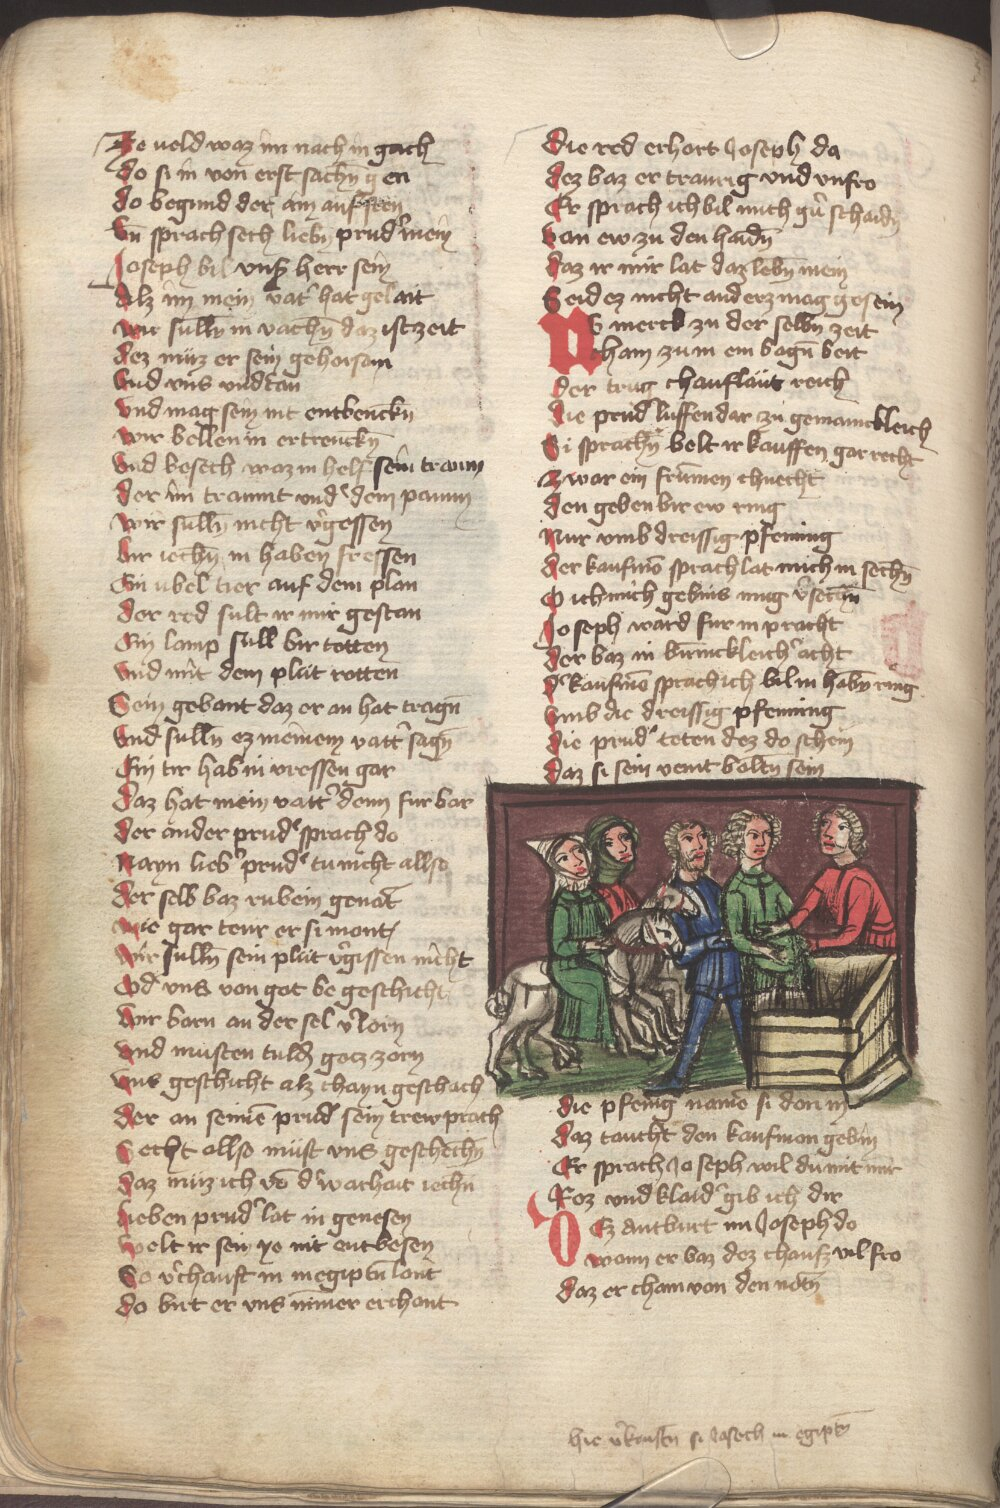 Ze veld waz im nach in gach
do si in von erst sachn gen
do begund der ain auf sten
vn sprach sech liebn prud' mein
Joseph bil vnß herr sein
Alz im mein vat' hat geseit
wir sulln in vachn daz ist zeit
dez müz er sein gehorsam
Vnd vns vndtan
Vnd mag sein nit entbenckn
wir bellen in ertrenckn
Vnd besech waz in helf sein traum
der im traumt vnd' dem paum
wir sulln nicht v'gessen
bir iechn in haben fressen
Ein ubel tier auf dem plan
der red sult ir mir gestan
Ein lamp sull bir totten
Vnd mit dem plüt rotten
Sein gebant daz er an hat tragn
Vnd sulln ez meinem vatt' sagn
Ein tir hab in vressen gar
daz hat mein vatt' denn fur bar
der ander prud' sprach do
Nayn lieb' prud' tu nicht allso
der selb baz rubein genāt
wie gar teur er si mont
wir sulln sein plüt v'gissen nicht
Od' vns von got be geschicht
bir barn an der sel v'lorn
Vnd musten tuldn gotz zorn
vns geschicht alz chayn geschach
der an seinē prud' sein trew prach
Secht allso müst vns geschechn
daz müz ich vō d' warhait iechn
lieben prud' lat in genesen
welt ir sein yo nit entbesen
So v'chauft in in egiptn lant
do birt er vns nimer erchant
die red erhort Joseph da
dez baz er traurig vnd vnfro
Er sprach ich bil mich gn' schaidn
van ew zu den haidn
daz ir mir lat daz lebn mein
Seid ez nicht anderz mag gesein
NS merck zu der selbn zeit
cham zu in ein bagn beit
der trug chauflaüt reich
die prud' luffen dar zu gemainckleich
Si sprachn belt ir kauffen gar recht
Zwar ein frümen chnecht
den geben bir ew ring
Nur vmb dreissig pfening
der kaufmō sprach lat mich in sechn
O ich mich gebins mug v'sechn
Joseph ward fur in pracht
der baz in bunnckleich' acht
d' kaufmō sprach ich bil in habn ring
vmb die dreissig pfenning
die prud' teten dez do schein
daz si sein veint boltn sein
die pfenig namē si don in
daz taucht den kaufman gebin
Er sprach Joseph wil du mit mir
Roz vnd klaid' gib ich dir
DEz antburt im Joseph do
wann er baz dez chaufz vil fro
daz er cham von den notn
hie v'kauftn si Josech in egiptn